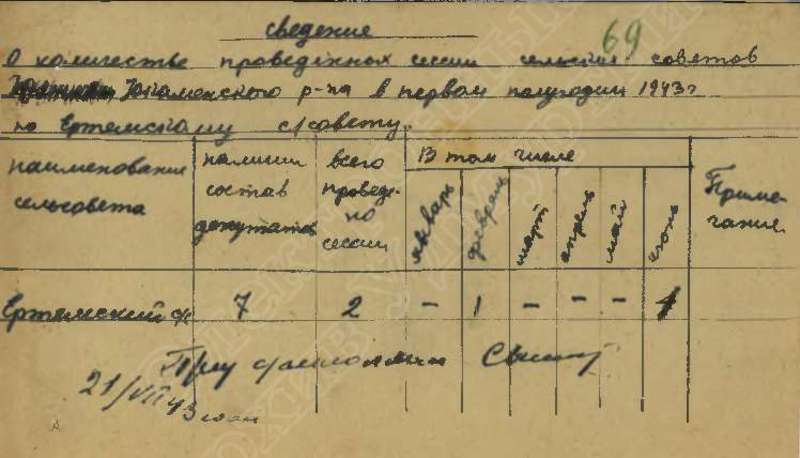 69
сведение
О количестве проведённых сессии сельских советов
Юкаменского р-на в первом полугодии 1943 г
по Ертемскому с/совету.
наименование сельсовета
налични состав депутатов
всего проведе-но сессии
В том числе
январь
февраль
март
апрель
май
июнь
Приме-чание
Ертемский с/с 7 2 - 1 - - - 1
21/VII 43 года